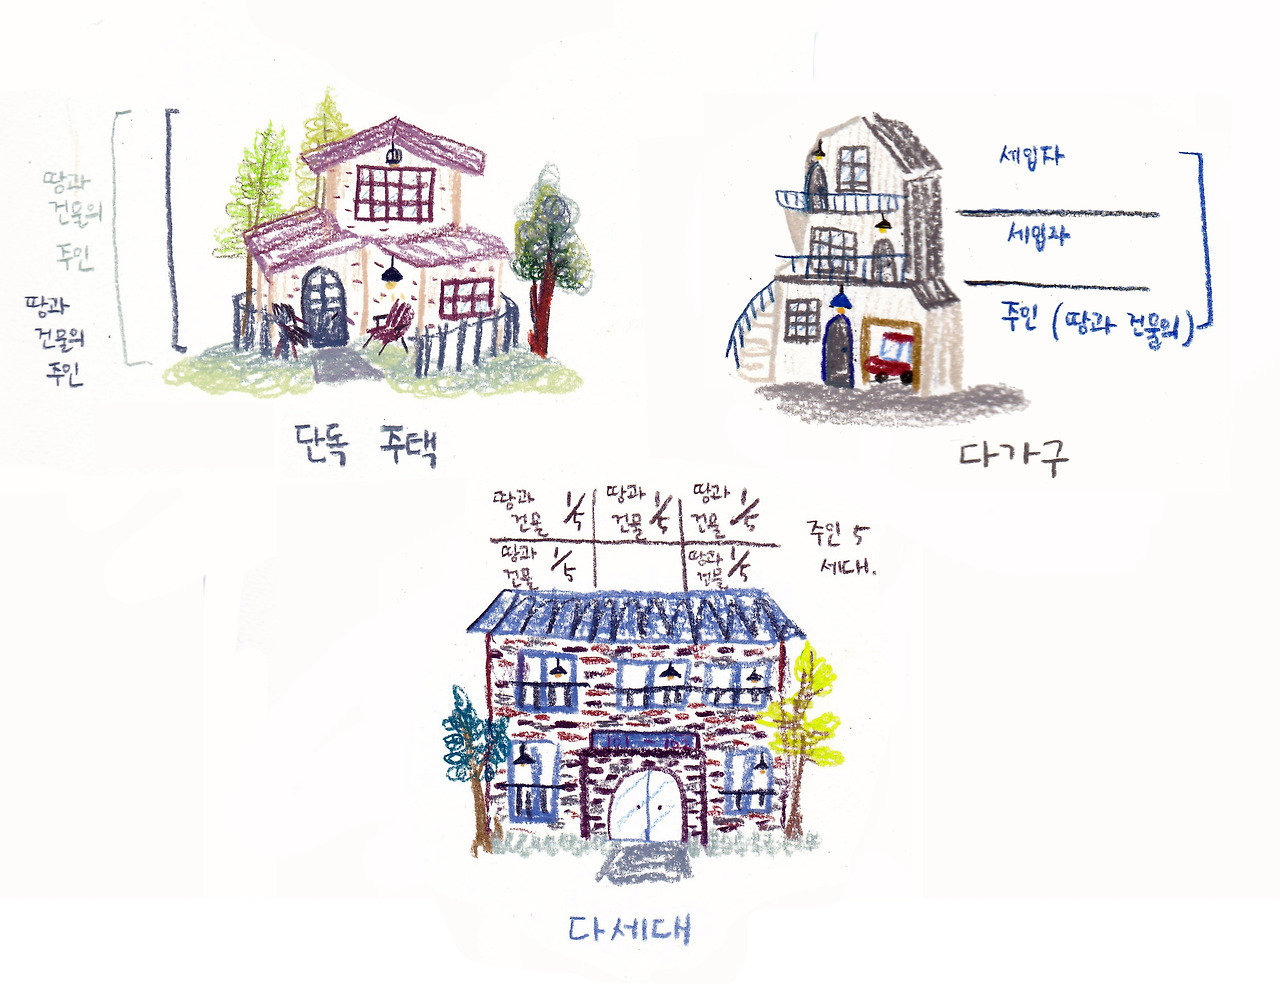 땅과
건물의
주인
땅과
건물의
주인
단독 주택
세입자
세입자
주인 (땅과 건물의)
다가구
땅과 건물 1/5
땅과 건물 1/5
땅과 건물 1/5
땅과 건물 1/5
땅과 건물 1/5
주인 5
세대.
다세대